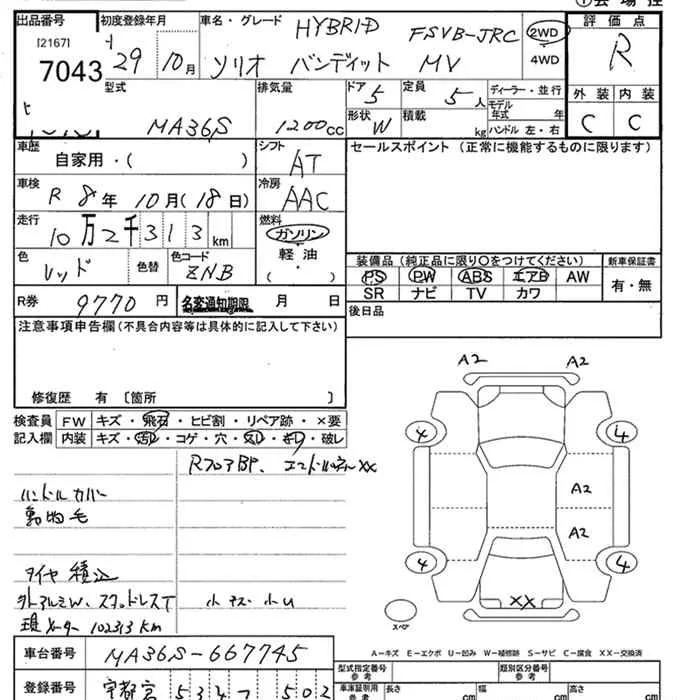 出品番号 初度登録年月 車名・グレード HYBRID FSVB-JRC 2WD 評価点
[2167] 7043 29 10月 ソリオ バンディット MV 4WD R
型式 排気量 ドア 5 定員 5人 ディーラー・並行 外装 内装
MA36S 1200cc 形状 W 積載 kg モデル年式 年 ハンドル 左・右 C C
車歴 自家用・( ) シフト AT セールスポイント (正常に機能するものに限ります)
車検 R 8年 10月(18日) 冷房 AAC
走行 10万2千313km 燃料 ガソリン 軽油・( )
色 レッド 色替 色コード ZNB 装備品 (純正品に限り○をつけてください) 新車保証書
PS PW ABS エアB AW 有・無
SR ナビ TV カワ
R券 9770円 名変通知期限 月 日 後日品
注意事項申告欄(不具合内容等は具体的に記入して下さい)
修復歴 有 〔箇所 〕
検査員 FW キズ・飛石・ヒビ割・リペア跡・×要
記入欄 内装 キズ・汚レ・コゲ・穴・スレ・キレ・破レ
A2 A2
RフロアBP、 エンドパネルXX
ハンドルカバー
動物毛
A2
A2
4 4
タイヤ積込
外アルミW、スタッドレスT 小キズ・小U
現メーター 102313km
XX
スペア
A−キズ E−エクボ U−凹み W−補修跡 S−サビ C−腐食 XX−交換済
車台番号 MA36S-667745 型式指定番号 参考 類別区分番号 参考
登録番号 宇都宮 534 502 車庫証明用 参考 長さ cm 幅 cm 高さ cm